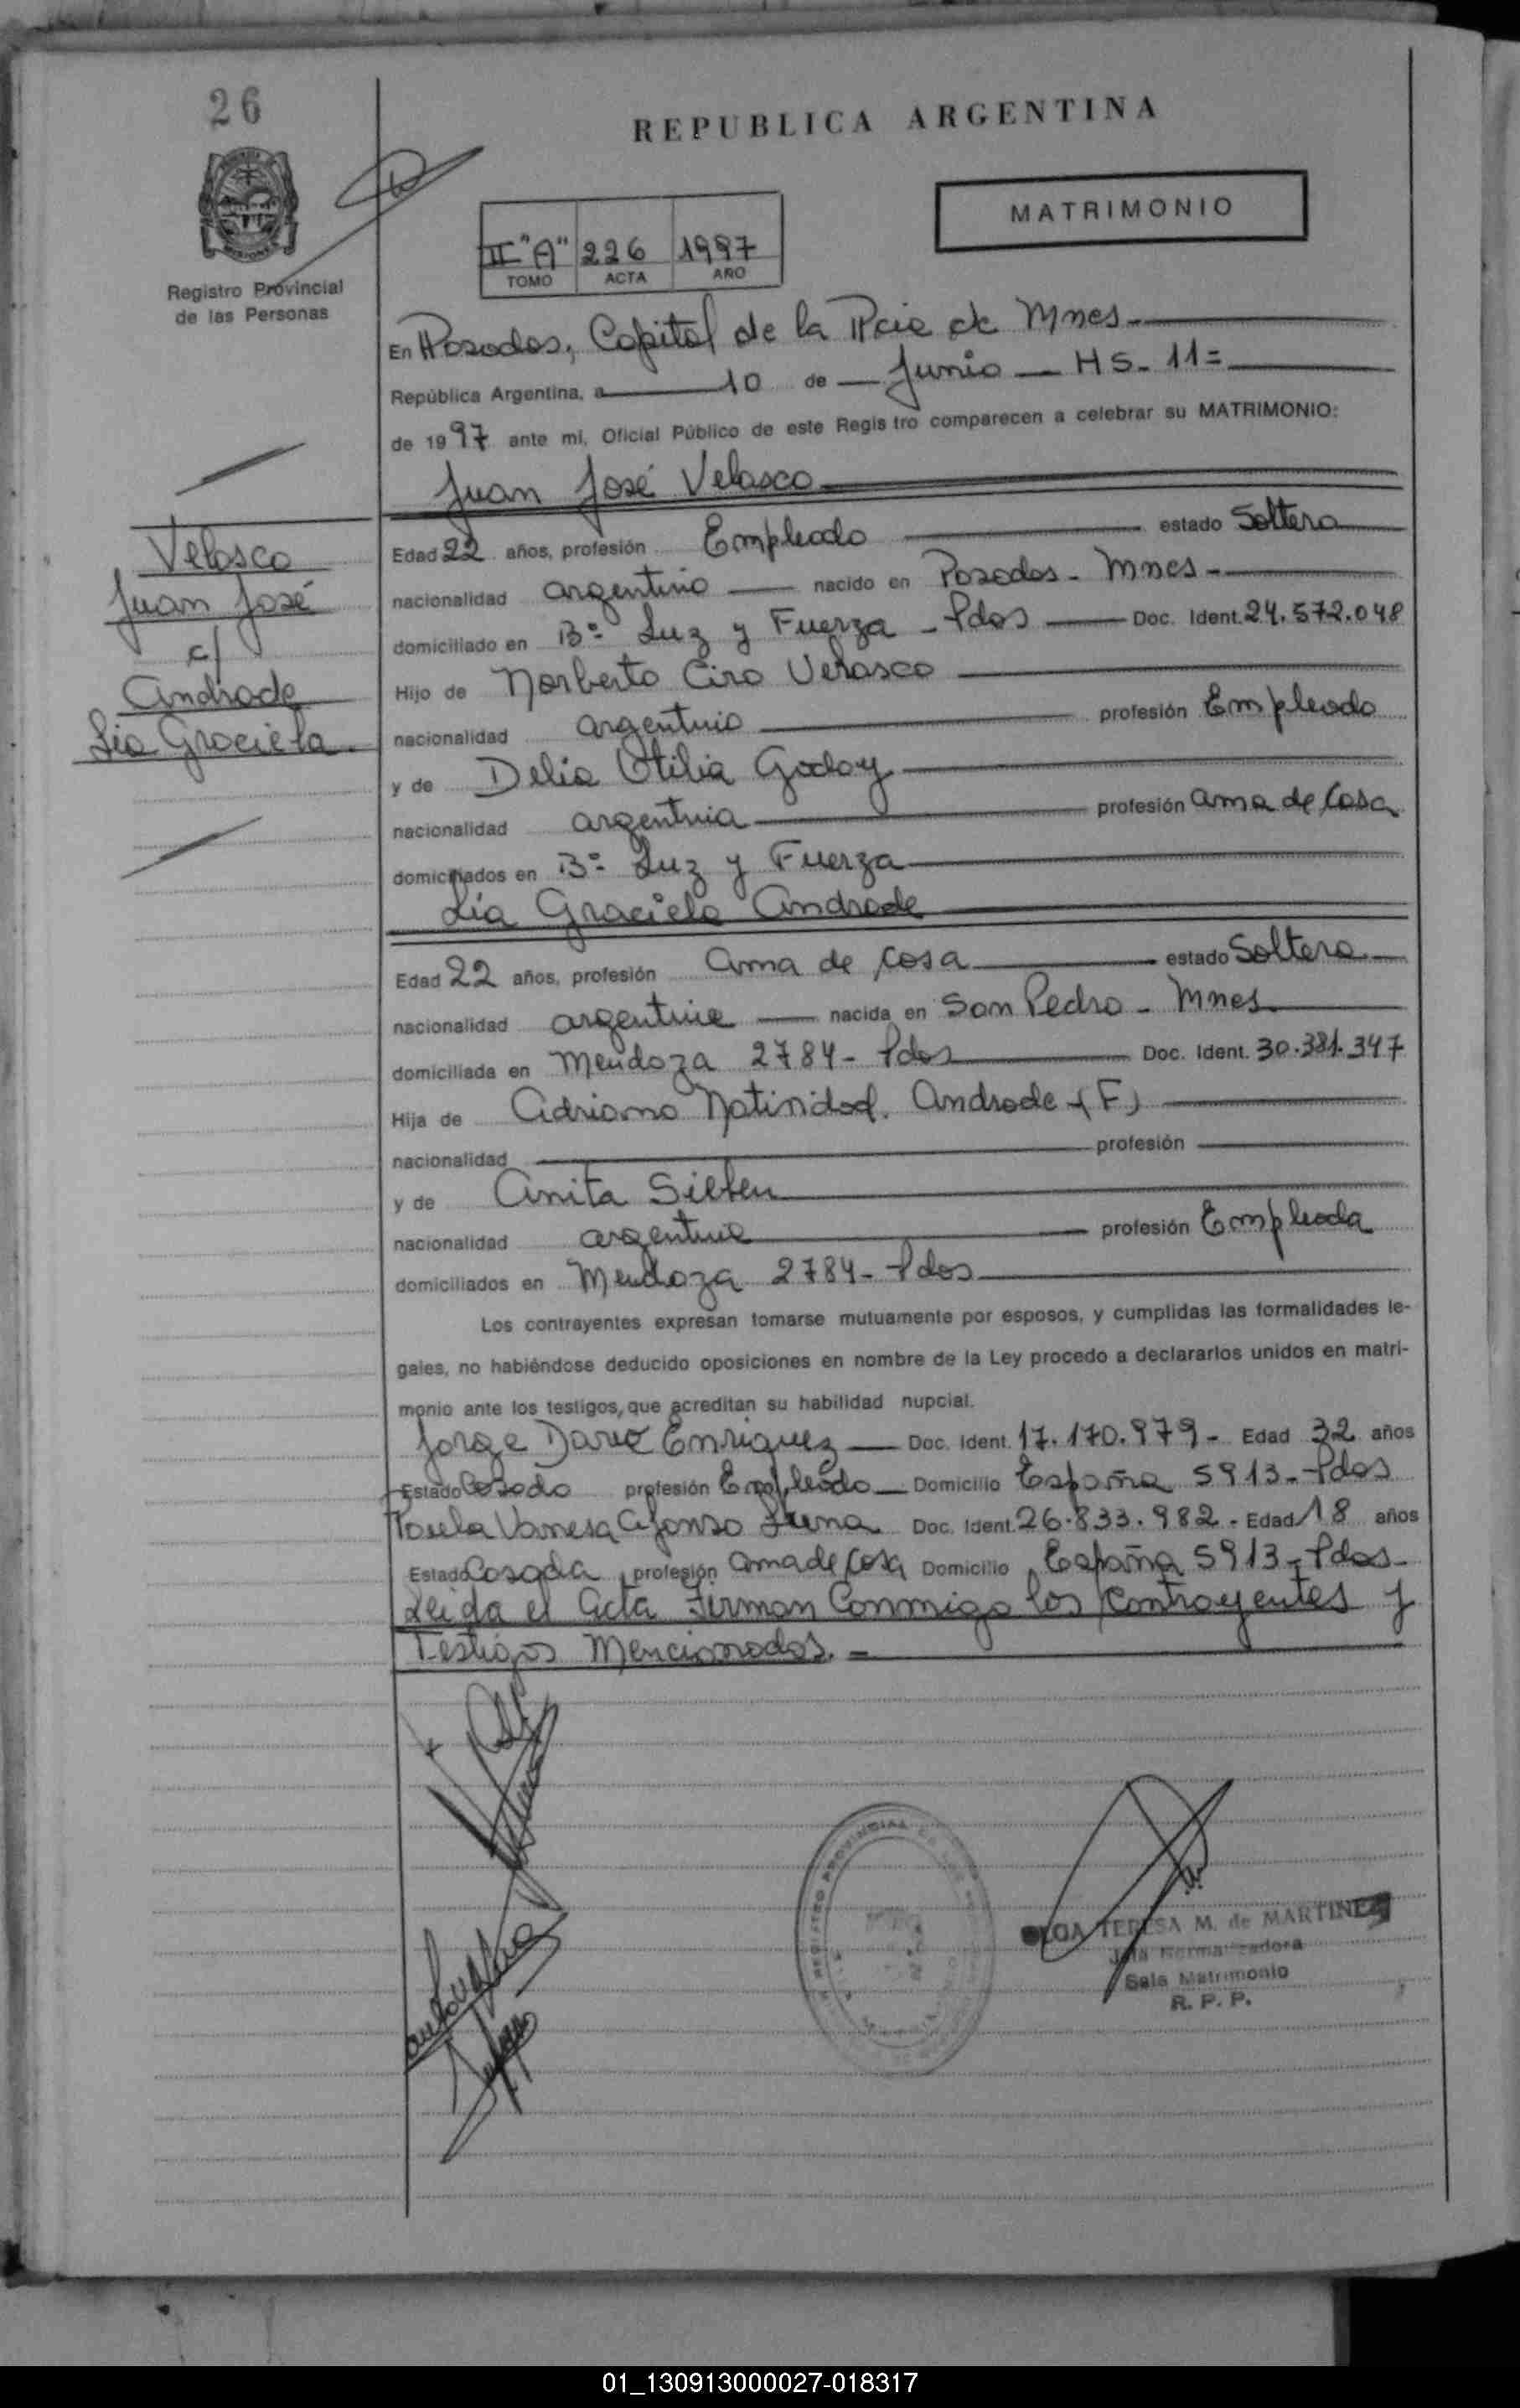 26
REPUBLICA ARGENTINA
MATRIMONIO
II "A" 226 1997
TOMO ACTA AÑO
Registro Provincial
de las Personas
En Posadas, Capital de la Pcia de Mnes.
República Argentina, a 10 de Junio Hs. 11=
de 1997 ante mi, Oficial Público de este Registro comparecen a celebrar su MATRIMONIO:
Juan José Velasco
Velasco
Juan José
c/
Andrade
Lia Graciela.
Edad 22 años, profesión Empleado estado Soltero
nacionalidad argentino nacido en Posadas - Mnes -
domiciliado en B= Luz y Fuerza - Pdas Doc. Ident. 24.572.048
Hijo de Norberto Ciro Velasco
nacionalidad argentino profesión Empleado
y de Delia Otilia Godoy
nacionalidad argentina profesión ama de Casa
domiciliados en B= Luz y Fuerza
Lia Graciela Andrade
Edad 22 años, profesión ama de casa estado Soltera
nacionalidad argentina nacida en San Pedro - Mnes
domiciliada en Mendoza 2784 - Pdas Doc. Ident. 30.381.347
Hija de Andrade (F)
nacionalidad profesión
y de Anita
nacionalidad argentina profesión Empleada
domiciliados en Mendoza 2784 - Pdas
Los contrayentes expresan tomarse mutuamente por esposos, y cumplidas las formalidades le-
gales, no habiéndose deducido oposiciones en nombre de la Ley procedo a declararlos unidos en matri-
monio ante los testigos, que acreditan su habilidad nupcial.
Jorge Dario Enriquez Doc. Ident. 17.170.979 - Edad 32 años
Estado Casado profesión Empleado Domicilio España 5913 - Pdas
Vanesa Doc. Ident. 26.833.982 - Edad 18 años
Estado Casada profesión ama de casa Domicilio España 5913 - Pdas
Leida el acta Firman Conmigo los Contrayentes y
Testigos Mencionados. =
TERESA M. de MARTINEZ
Sala Matrimonio
R. P. P.
01_130913000027-018317